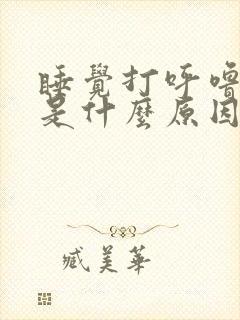 睡覺打呼嚕
是什麼原因
臧美華